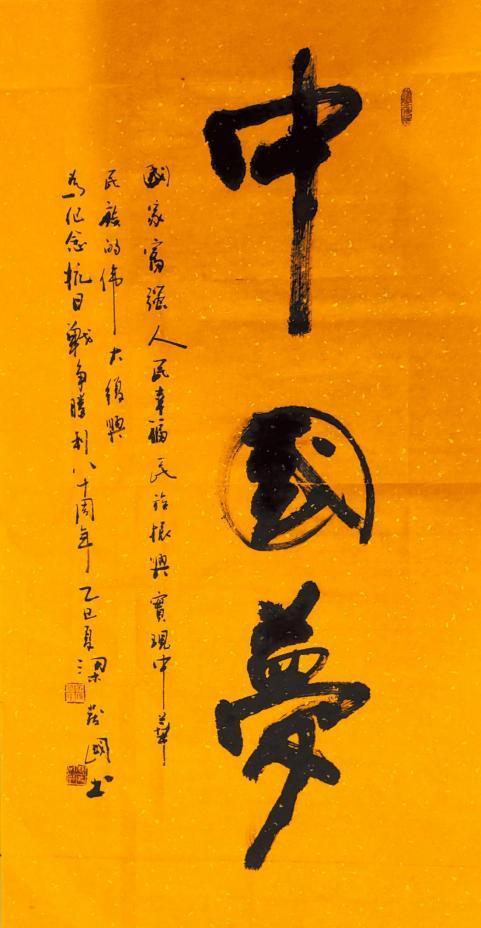 中國夢
國家富强人民幸福民族振興實現中華
民族的偉大復興
為紀念抗日戰爭勝利八十周年 乙巳夏 梁
國書